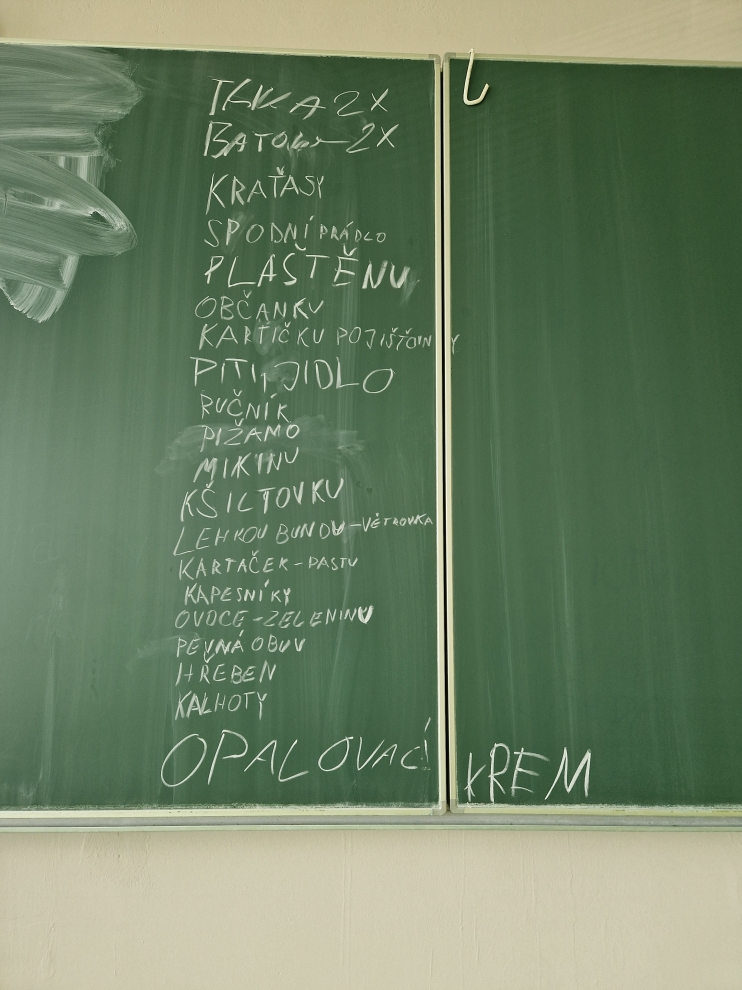 2X
BATOH - 2X
KRAŤASY
SPODNÍ PRÁDLO
PLÁŠTĚNU
OBČANKU
KARTIČKU POJIŠŤOVNY
PITI, JIDLO
RUČNÍK
PIŽAMO
MIKINU
KŠILTOVKU
LEHKOU BUNDU - VĚTROVKA
KARTAČEK - PASTU
KAPESNÍKY
OVOCE - ZELENINU
PEVNÁ OBUV
HŘEBEN
KALHOTY
OPALOVACÍ KREM